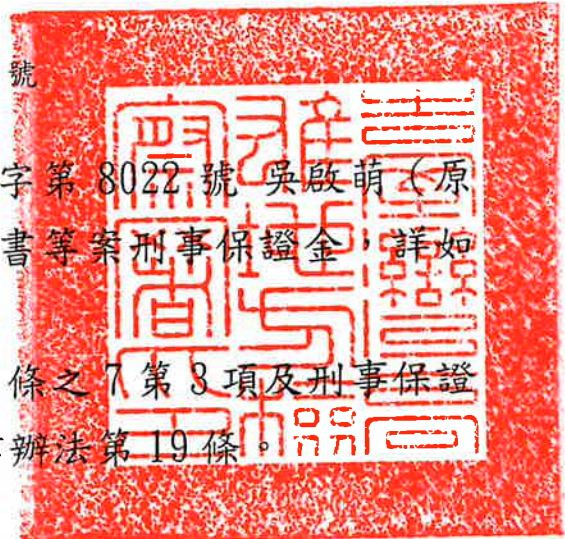 號
字第 8022 號 吳啟萌（原
書等案刑事保證金，詳如
條之 7 第 3 項及刑事保證
辦法第 19 條。